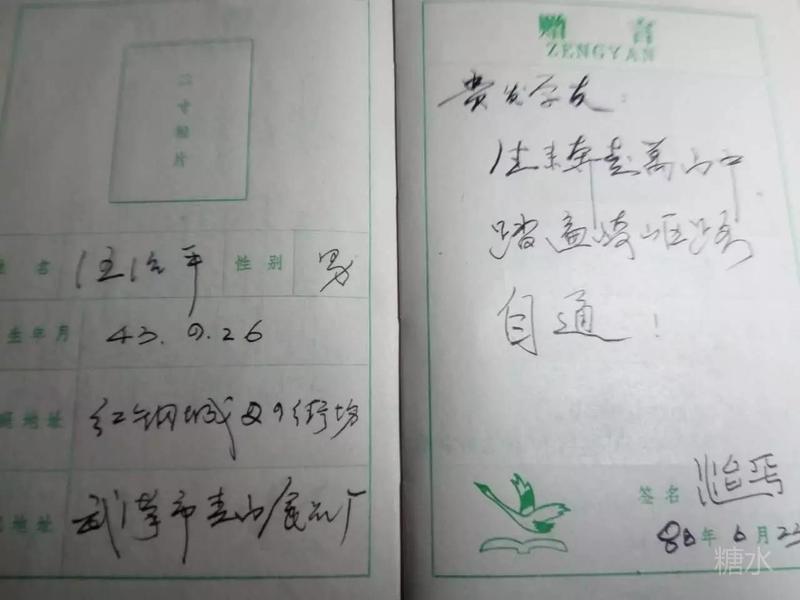 二寸相片
姓名 汪治平 性别 男
生年月 43.9.26
地址 红钢城 街坊
地址 武汉市青山 厂
赠言
ZENGYAN
贵发学友：
往来奔走万山中
踏遍崎岖路
自通！
签名
88年6月
糖水